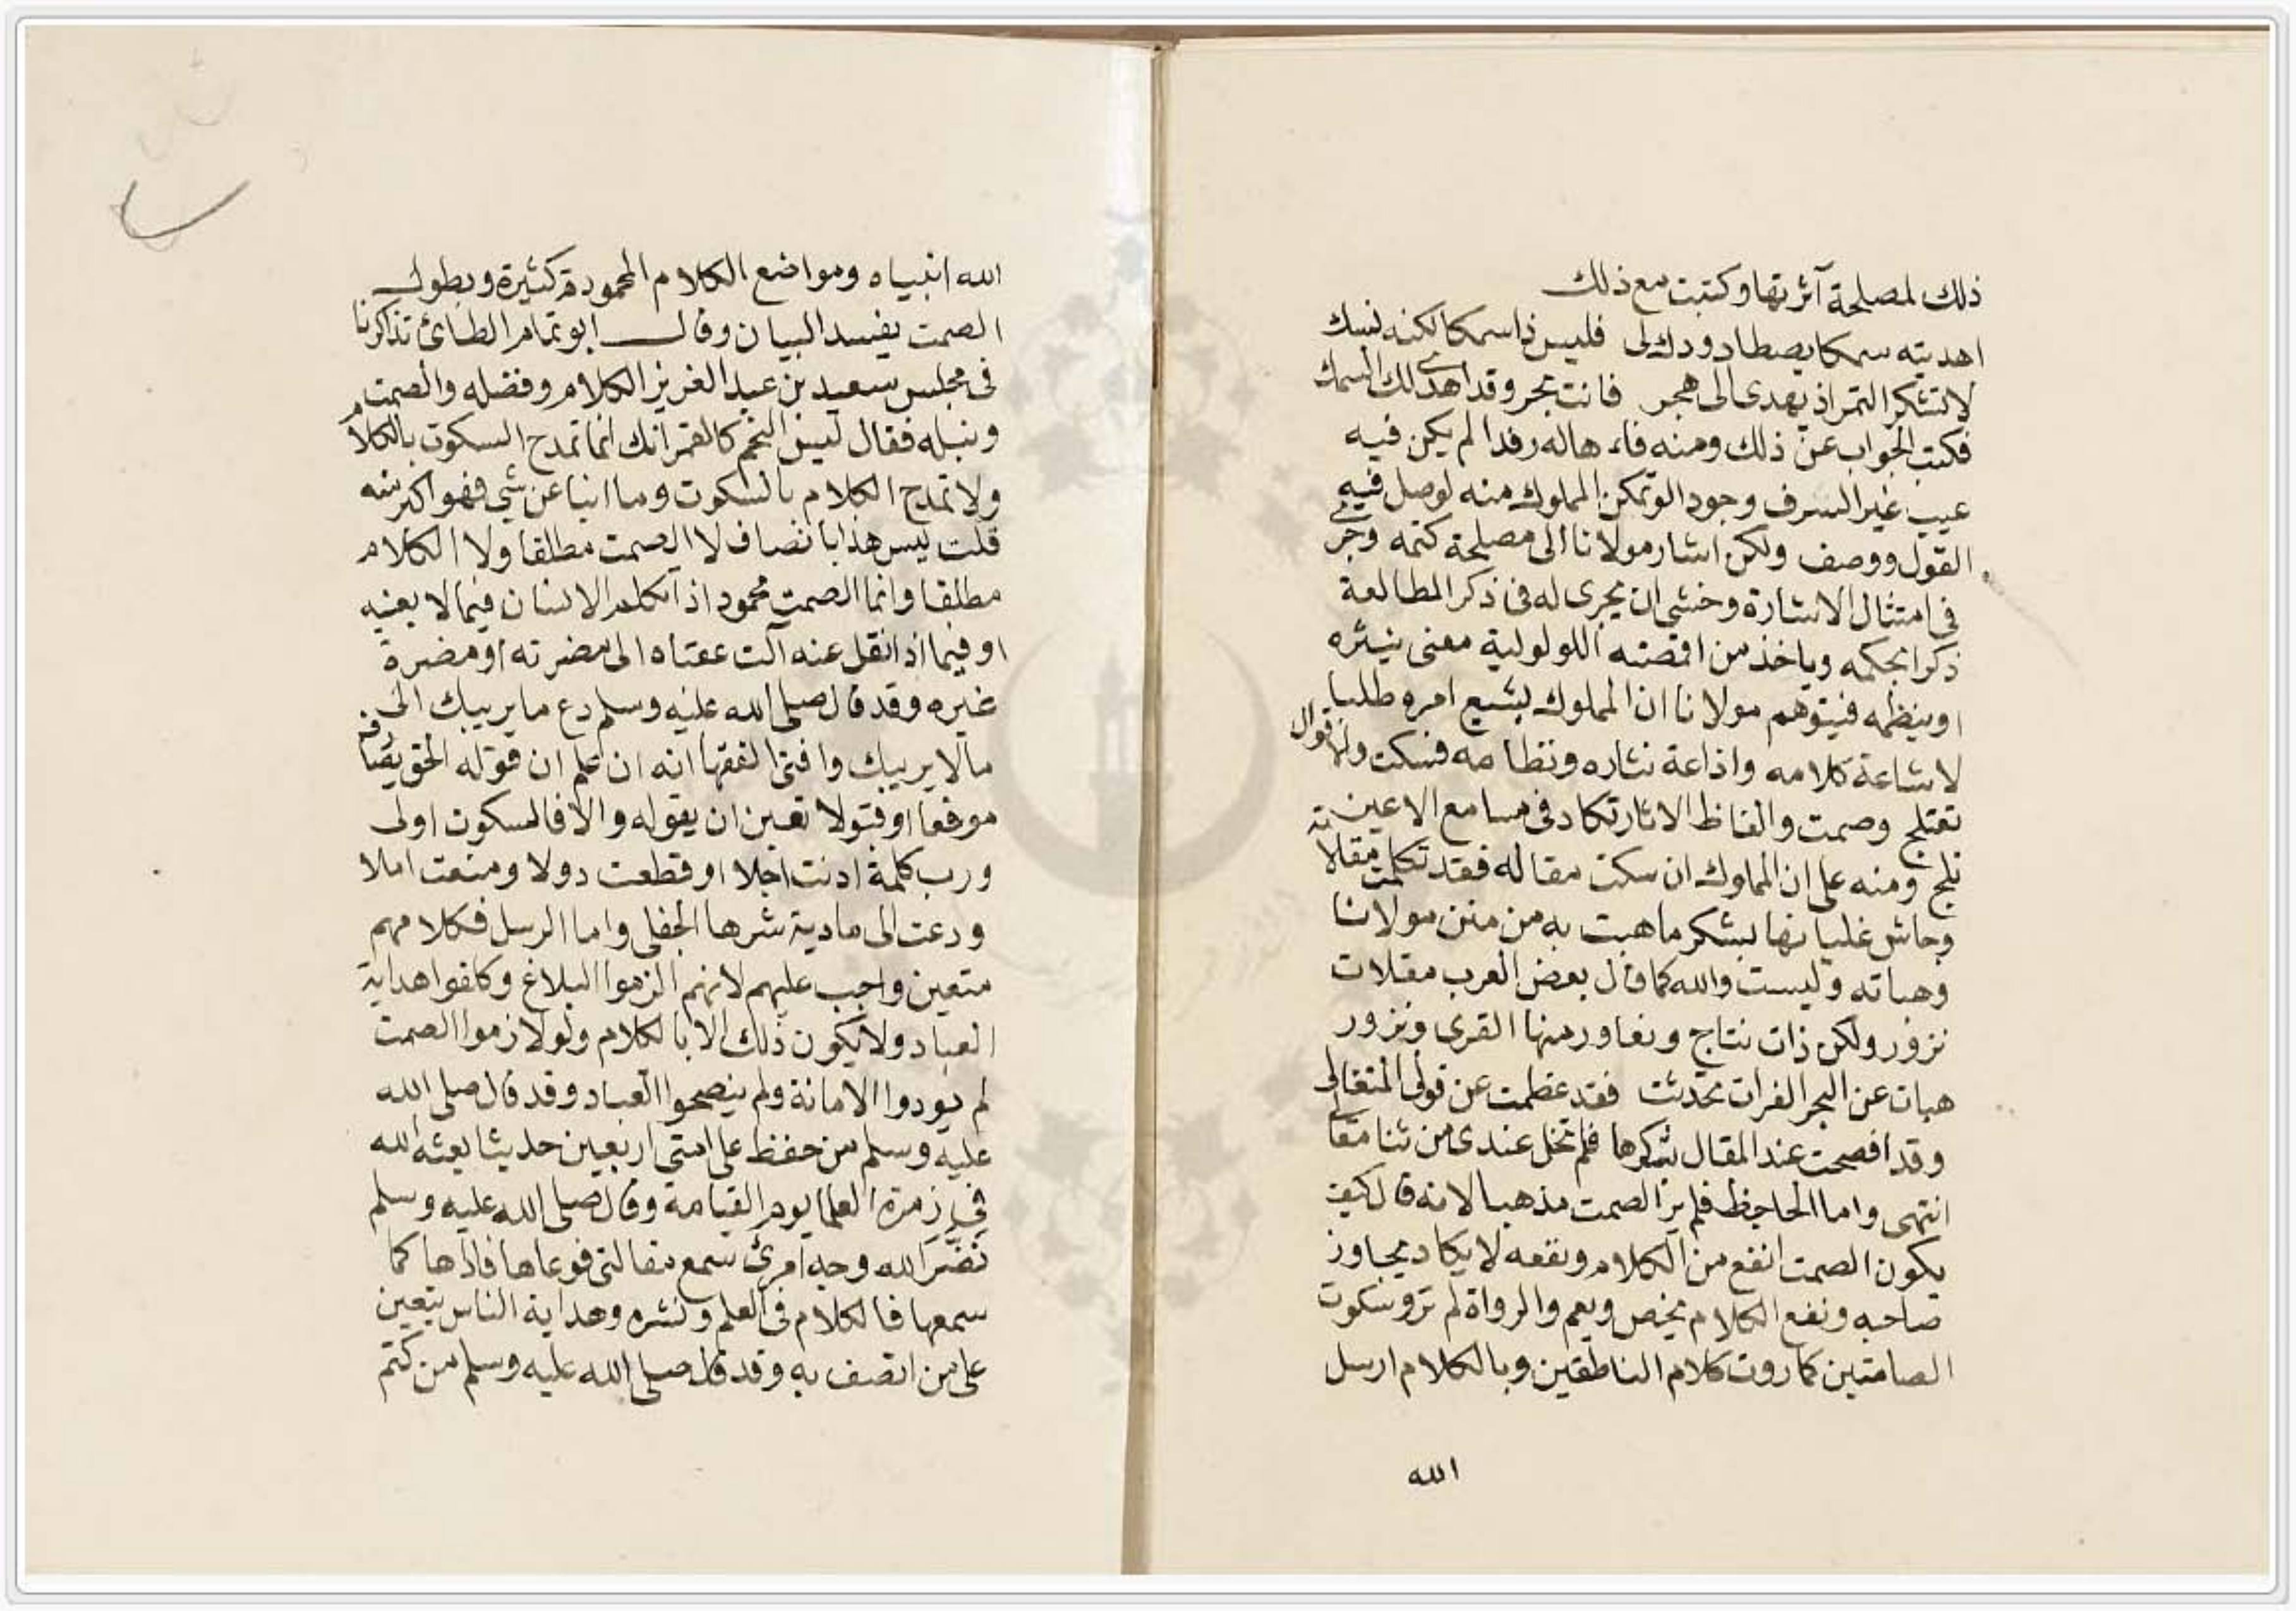 ذلك لمصلحة آثرتها وكتبت مع ذلك
اهديته سمكا يصطاد ودك لى فليس ذا سمكا لكنه نسك
لا تشكر التمر اذ يهدى الى هجر فانت بحر وقد اهدى لك السمك
فكتب الجواب عن ذلك ومنه فاء هاله رفدا لم يكن فيه
عيب غير السرف وجودا لو تمكن المملوك منه لوصل فيه
القول ووصف ولكن اشار مولانا الى مصلحة كتمه وجرى
فى امتثال الاشارة وخشى ان يجرى له فى ذكر المطالعة
ذكرا بحكمه وياخذ من اقصته اللولولية معنى ينثره
او ينظمه فيتوهم مولانا ان المملوك يشيع امره طلبا
لاشاعة كلامه واذاعة نثاره ونظامه فسكت والاقوال
تعتلج وصمت والفاظ الاثار تكاد فى مسامع الاعين
تلج ومنه على ان المملوك ان سكت مقاله فقد تكلمت مقالاته
وجاش غليانها بشكر ما هبت به من منن مولانا
وهباته وليست والله كما قال بعض العرب مقلات
نزور ولكن ذات نتاج ونغاور منها القرى ونزور
هبات عن البحر الفرات تحدثت فقد عظمت عن قولى المتغالى
وقد افصحت عند المقال بشكرها فلم تخل عندى من ثنا مقالى
انتهى واما الجاحظ فلم ير الصمت مذهبا لانه قال كيف
يكون الصمت انفع من الكلام ونفعه لا يكاد يجاوز
صاحبه ونفع الكلام يخص ويعم والرواة لم ترو سكوت
الصامتين كما روت كلام الناطقين وبالكلام ارسل
الله
الله انبياه ومواضع الكلام المحمودة كثيرة وبطول
الصمت يفسد البيان وقال ابو تمام الطائ تذاكرنا
فى مجلس سعيد بن عبد العزيز الكلام وفضله والصمت
ونبله فقال ليس النجم كالقمر انك انما تمدح السكوت بالكلام
ولا تمدح الكلام بالسكوت وما انبا عن شي فهو اكبر منه
قلت ليس هذا بانصاف لا الصمت مطلقا ولا الكلام
مطلقا وانما الصمت محمود اذا تكلم الانسان فيما لا يعنيه
او فيما اذا نقل عنه آلت عقباه الى مضرته او مضرة
غيره وقد قال صلى الله عليه وسلم دع ما يريبك الى
ما لا يريبك وافتى الفقها انه ان علم ان قوله الحق يصادف
موقعا او قبولا تعين ان يقوله والا فالسكوت اولى
ورب كلمة ادنت اجلا او قطعت دولا ومنعت املا
ودعت الى مادبة شرها الجفلى واما الرسل فكلامهم
متعين واجب عليهم لانهم الزموا البلاغ وكلفوا هداية
العباد ولا يكون ذلك الا بالكلام ولو لازموا الصمت
لم يودوا الامانة ولم ينصحوا العباد وقد قال صلى الله
عليه وسلم من حفظ على امتى اربعين حديثا بعثه الله
فى زمرة العلما يوم القيامة وقال صلى الله عليه وسلم
نضّر الله وجه امرئ سمع مقالتى فوعاها فاداها كما
سمعها فالكلام فى العلم ونشره وهداية الناس يتعين
على من اتصف به وقد قال صلى الله عليه وسلم من كتم